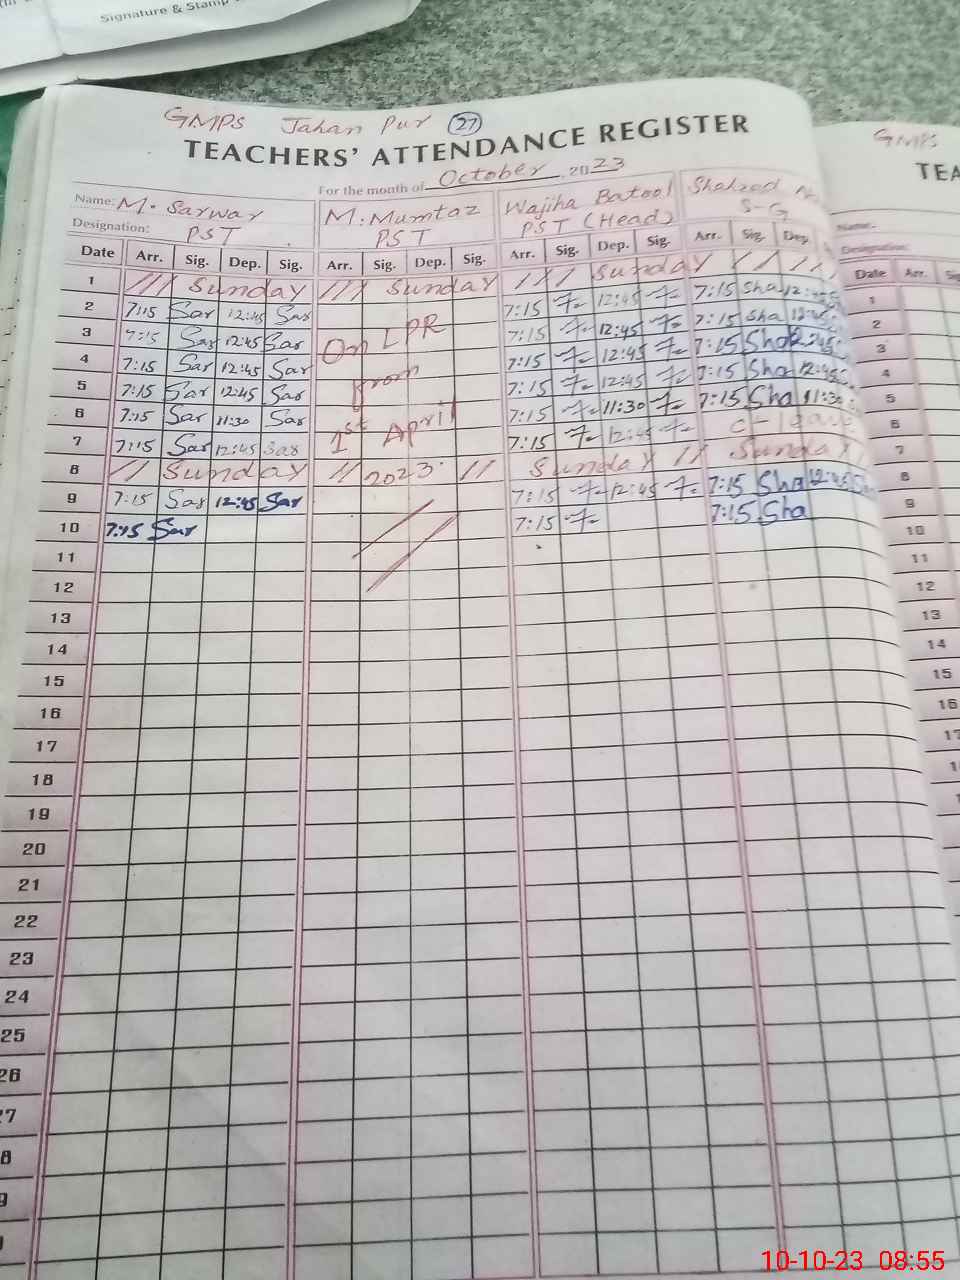 Signature & Stamp
GMPS Jahan Pur 27
TEACHERS' ATTENDANCE REGISTER
For the month of October 2023
Name: M. Sarwar M. Mumtaz Wajiha Batool Shahzad
Designation: PST PST PST (Head) S-G
Date Arr. Sig. Dep. Sig. Arr. Sig. Dep. Sig. Arr. Sig. Dep. Sig. Arr. Sig. Dep.
1 /// Sunday /// Sunday /// Sunday
2 7:15 Sar 12:45 Sar 7:15 12:45 7:15 Sha 12:45
3 7:15 Sar 12:45 Sar On LPR 7:15 12:45 7:15 Sha 12:45
4 7:15 Sar 12:45 Sar from 7:15 12:45 7:15 Sha 12:45
5 7:15 Sar 12:45 Sar 7:15 12:45 7:15 Sha 12:45
6 7:15 Sar 11:30 Sar 1st April 7:15 11:30 7:15 Sha 11:30
7 7:15 Sar 12:45 Sar 7:15 12:45 C-leave
8 // Sunday // 2023 // Sunday // Sunday
9 7:15 Sar 12:45 Sar 7:15 12:45 7:15 Sha 12:45
10 7:15 Sar 7:15 7:15 Sha
11
12
13
14
15
16
17
18
19
20
21
22
23
24
25
26
27
8
9
GMPS
TEA
Name:
Designation:
Date Arr.
1
2
3
4
5
6
7
8
9
10
11
12
13
14
15
16
10-10-23 08:55